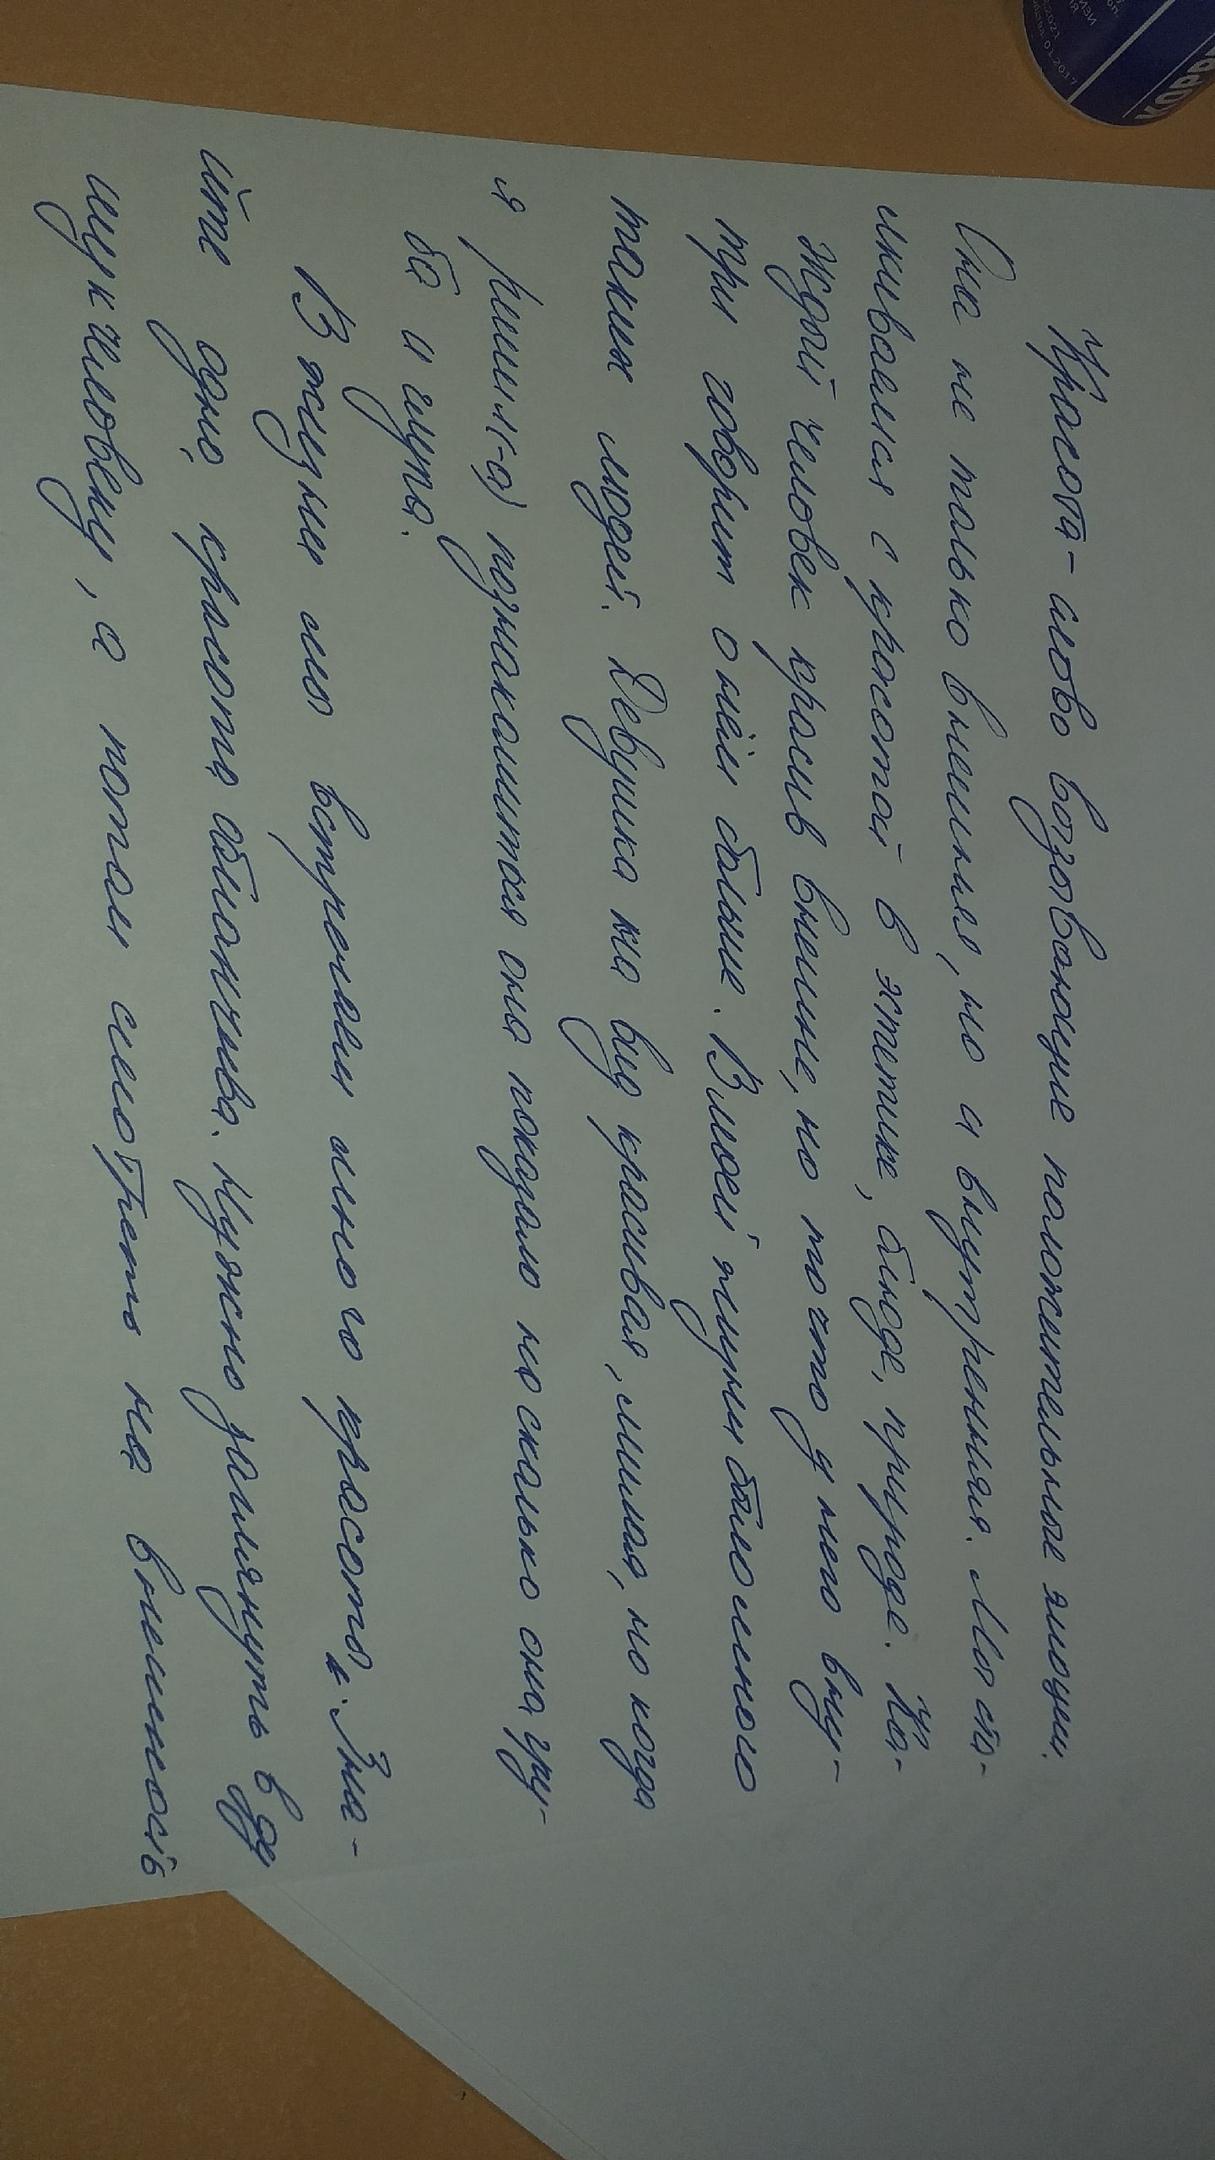 Красота - слово возывающие положительные эмоции.
Она не только внешняя, но и внутренняя. Мы ста-
лкиваемся с красотой в эстетике, блюде, природе. Ка-
ждый человек красив внешне, но то что у него вну-
три говорит о нём больше. В моей жизни было много
таких людей. Девушка на вид красивая, милая, но когда
я решил(-а) познакомиться она показало на сколько она гру-
ба и глупа.
В жизни мы встречаем много красоты. Зна-
йте одно, красота обманчива. Нужно заглянуть в ду
шу к человеку, а потом смотреть на внешность
КОРР
01.2017